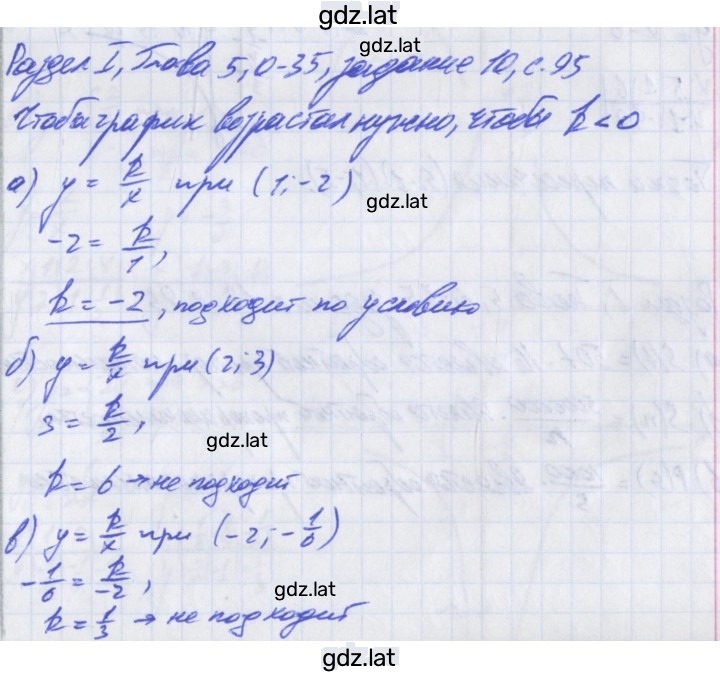 gdz.lat
Раздел I, Глава 5, О-35, задание 10, с. 95
Чтобы график возрастал нужно, чтобы k < 0
а) y = k/x при (1; -2)
gdz.lat
-2 = k/1,
k = -2, подходит по условию
б) y = k/x при (2; 3)
3 = k/2,
gdz.lat
k = 6 → не подходит
в) y = k/x при (-2; -1/6)
-1/6 = k/-2,
gdz.lat
k = 1/3 → не подходит
gdz.lat